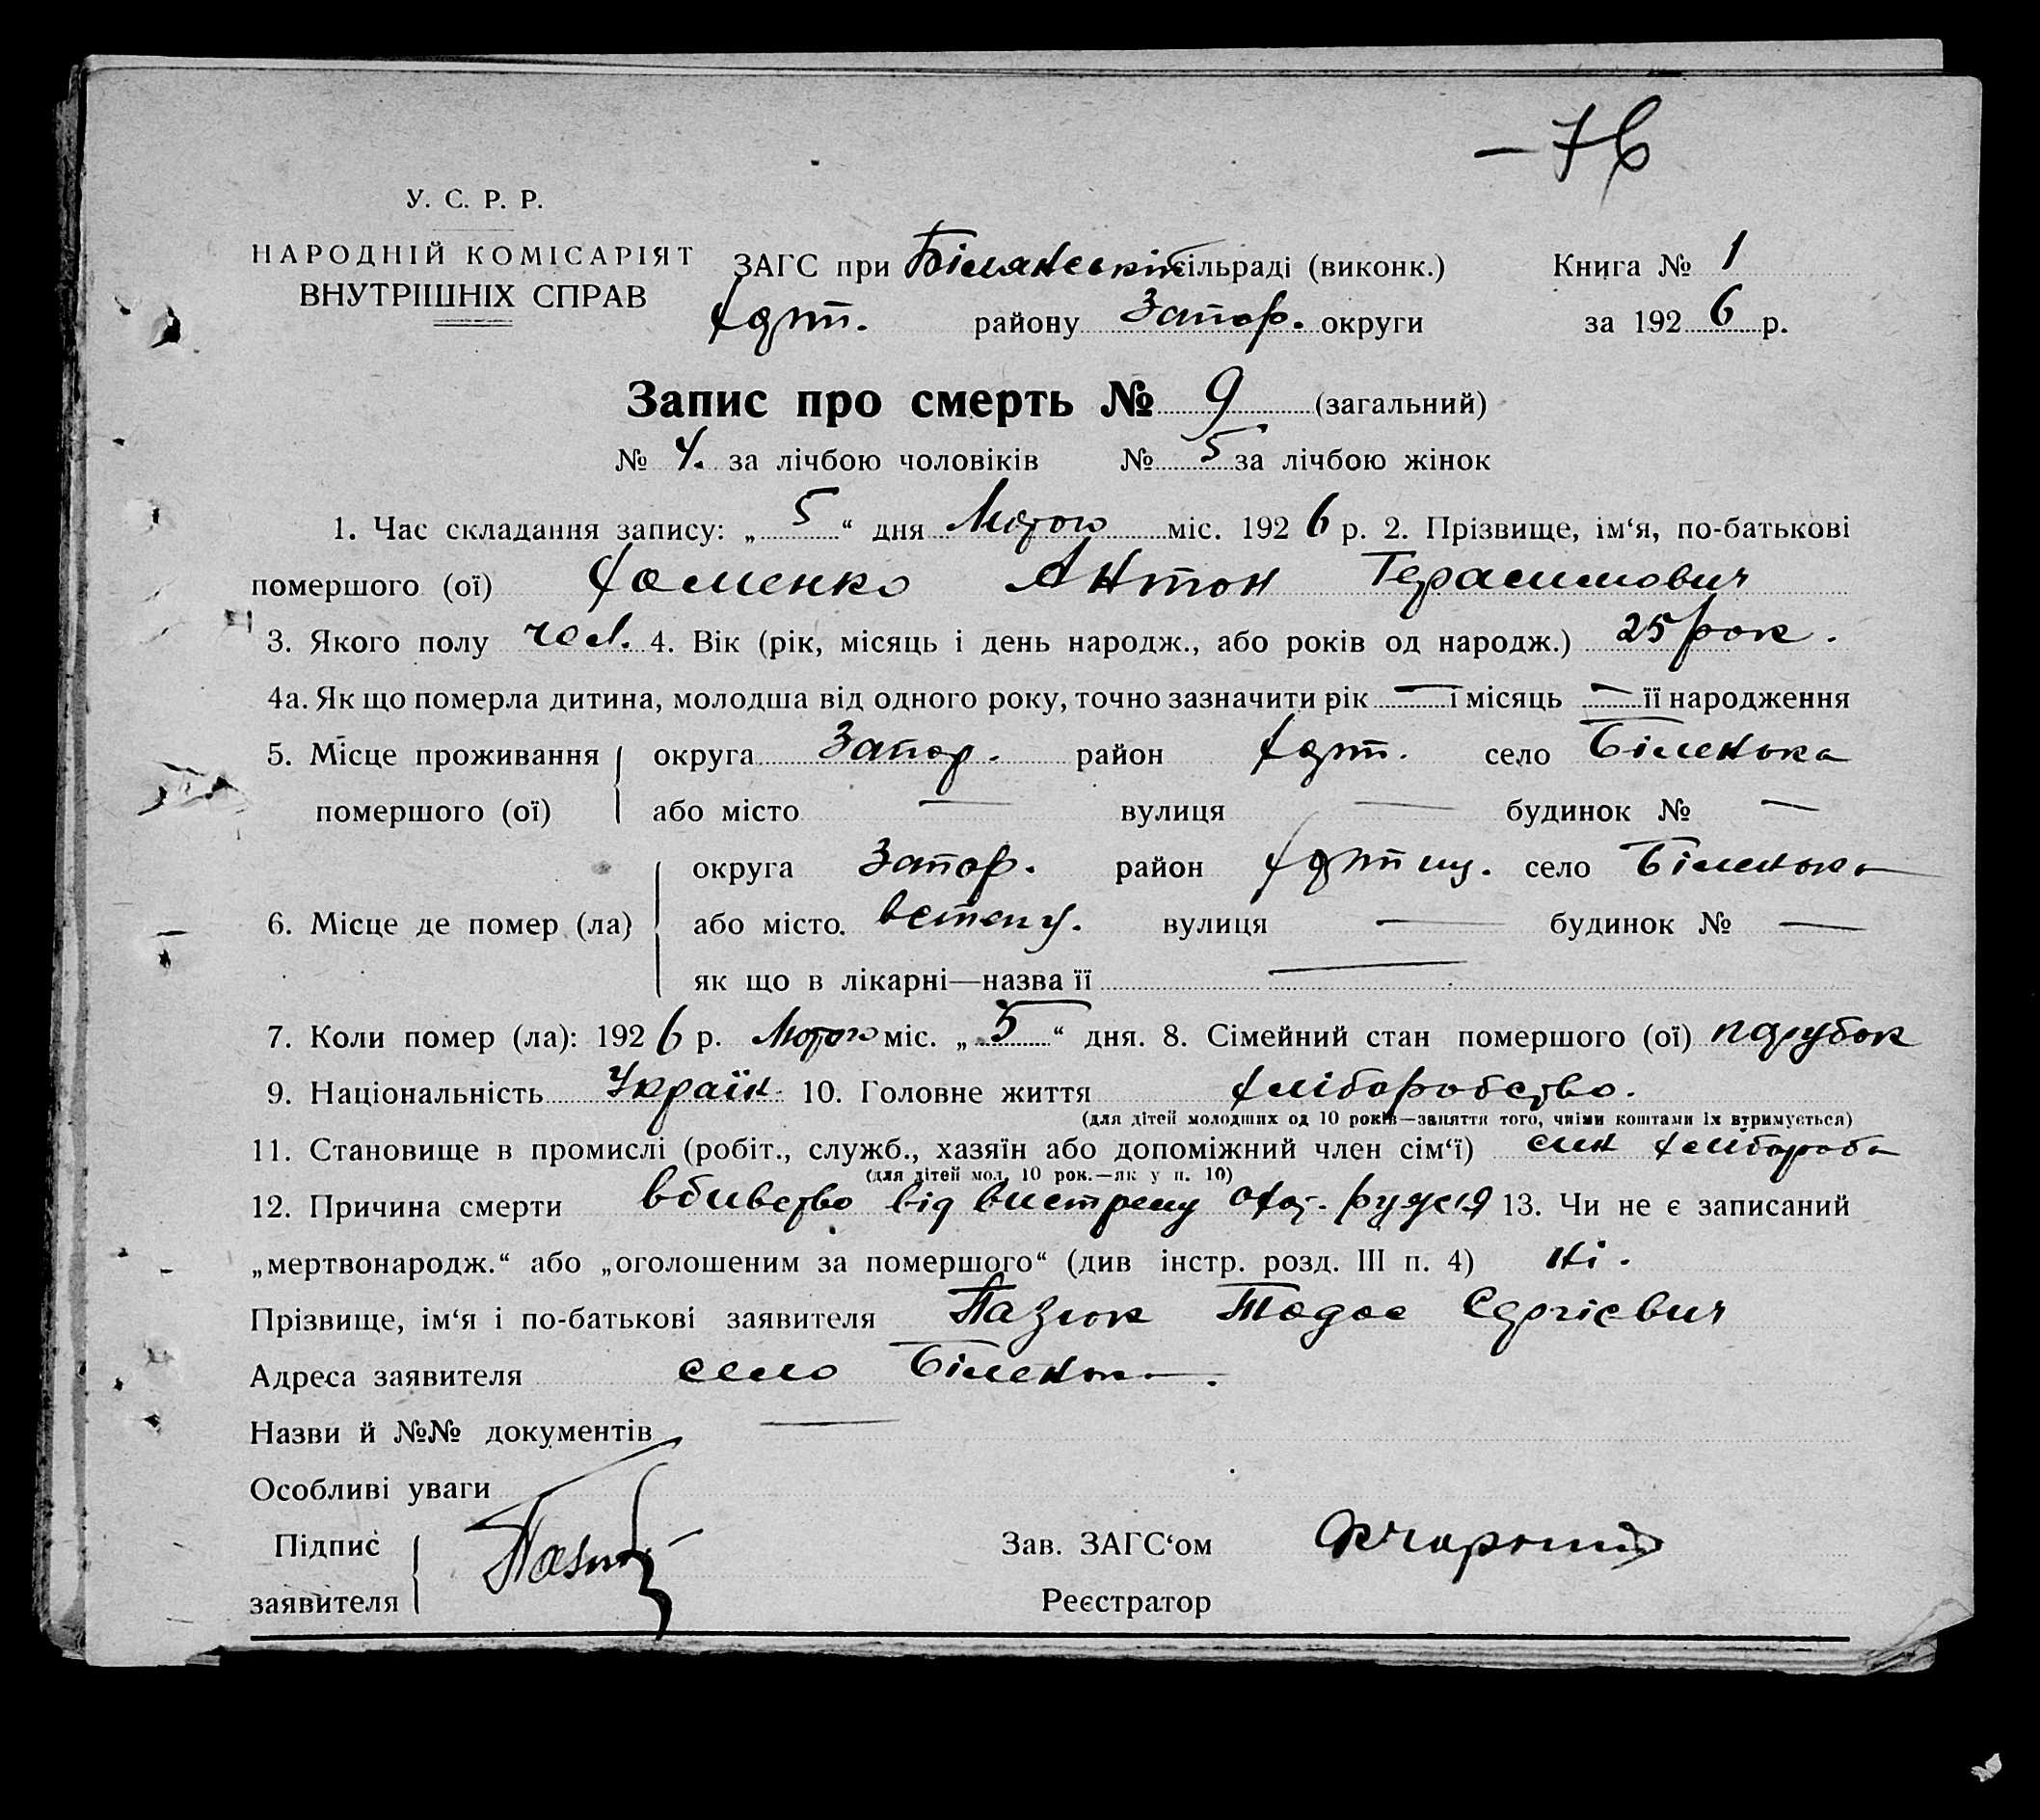 — 76
У. С. Р. Р.
НАРОДНІЙ КОМІСАРІЯТ
ВНУТРІШНІХ СПРАВ
ЗАГС при Біленській сільраді (виконк.) Книга № 1
Хорт. району Запор. округи за 1926 р.
Запис про смерть № 9 (загальний)
№ 4. за лічбою чоловіків № 5 за лічбою жінок
1. Час складання запису: „5“ дня Лютого міс. 1926 р. 2. Прізвище, ім‘я, по-батькові
помершого (ої) Хоменко Антон Герасимович
3. Якого полу чол. 4. Вік (рік, місяць і день народж., або років од народж.) 25 рок.
4а. Як що померла дитина, молодша від одного року, точно зазначити рік — і місяць — її народження
5. Місце проживання округа Запор. район Хорт. село Біленька
помершого (ої) або місто — вулиця — будинок № —
округа Запор. район село Біленька
6. Місце де помер (ла) або місто. в степу. вулиця — будинок № —
як що в лікарні—назва її —
7. Коли помер (ла): 1926 р. Лютого міс. „5“ дня. 8. Сімейний стан помершого (ої) парубок
9. Національність Україн. 10. Головне життя хліборобство.
(для дітей молодших од 10 років—заняття того, чиїми коштами їх втримується)
11. Становище в промислі (робіт., служб., хазяїн або допоміжний член сім‘ї) син хлібороба
(для дітей мол. 10 рок.—як у п. 10)
12. Причина смерти вбивство від вистрелу ружя 13. Чи не є записаний
„мертвонародж.“ або „оголошеним за помершого“ (див інстр. розд. III п. 4) ні.
Прізвище, ім‘я і по-батькові заявителя Пазюк Тодос Сергієвич
Адреса заявителя село Біленька.
Назви й №№ документів —
Особливі уваги
Підпис Зав. ЗАГС‘ом
заявителя Реєстратор